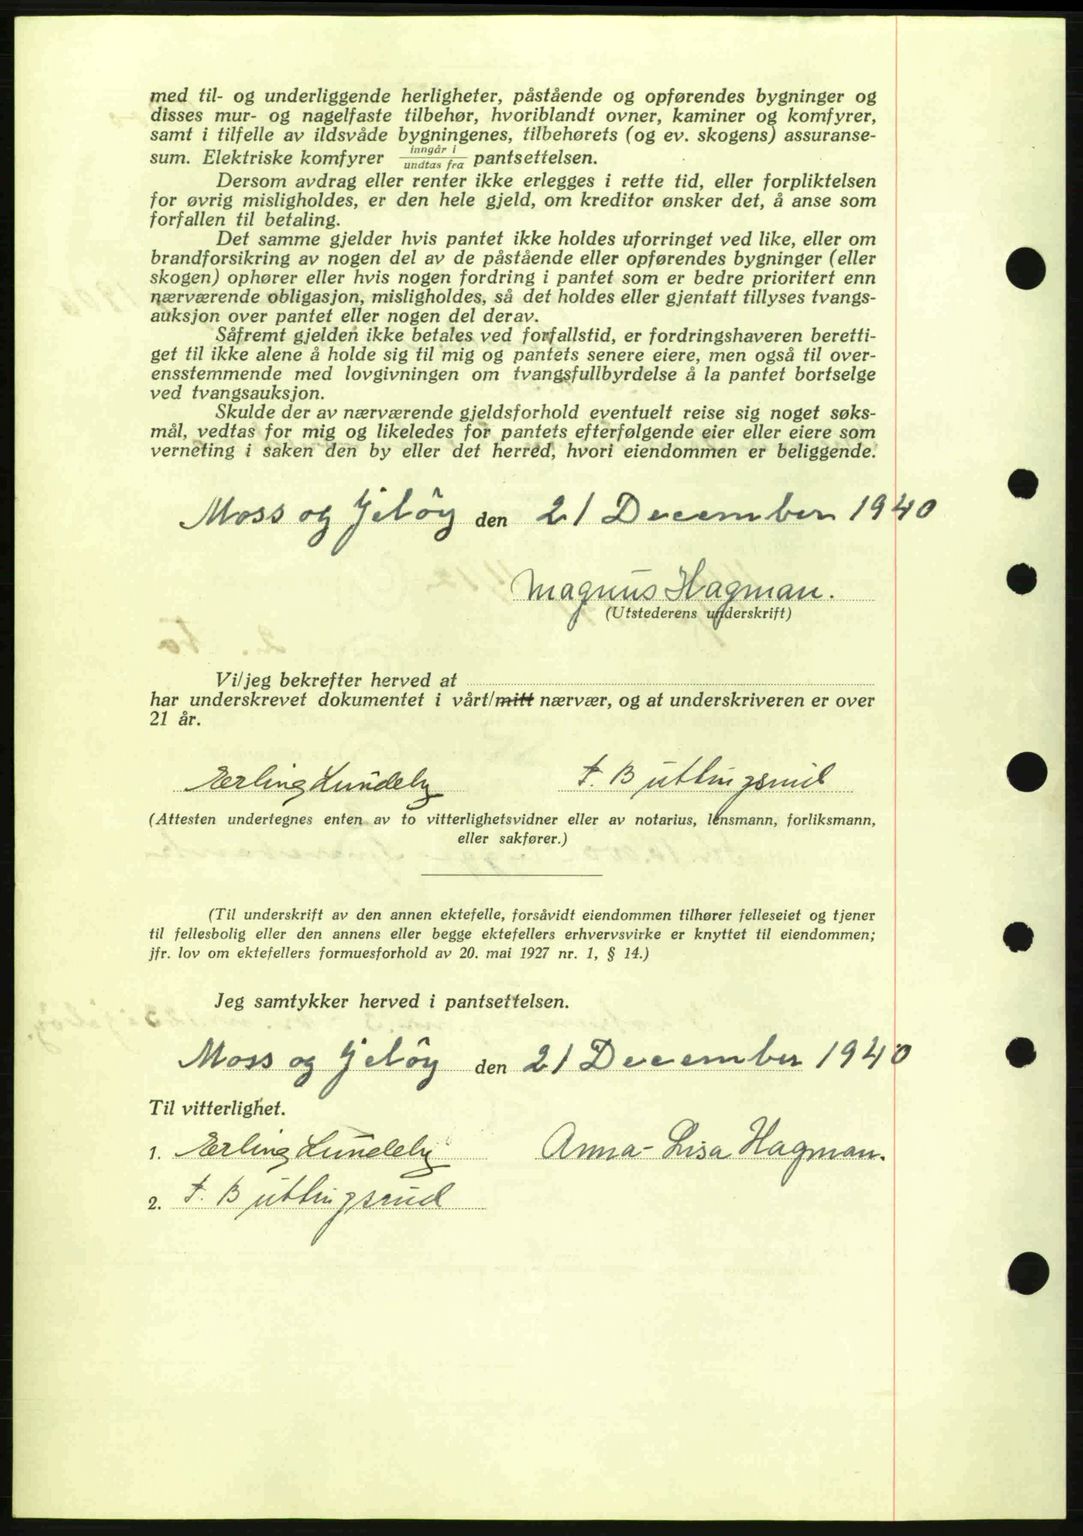 med til- og underliggende herligheter, påstående og opførendes bygninger og
disses mur- og nagelfaste tilbehør, hvoriblandt ovner, kaminer og komfyrer,
samt i tilfelle av ildsvåde bygningenes, tilbehørets (og ev. skogens) assuranse-
sum. Elektriske komfyrer inngår i / undtas fra pantsettelsen.
Dersom avdrag eller renter ikke erlegges i rette tid, eller forpliktelsen
for øvrig misligholdes, er den hele gjeld, om kreditor ønsker det, å anse som
forfallen til betaling.
Det samme gjelder hvis pantet ikke holdes uforringet ved like, eller om
brandforsikring av nogen del av de påstående eller opførendes bygninger (eller
skogen) ophører eller hvis nogen fordring i pantet som er bedre prioritert enn
nærværende obligasjon, misligholdes, så det holdes eller gjentatt tillyses tvangs-
auksjon over pantet eller nogen del derav.
Såfremt gjelden ikke betales ved forfallstid, er fordringshaveren beretti-
get til ikke alene å holde sig til mig og pantets senere eiere, men også til over-
ensstemmende med lovgivningen om tvangsfullbyrdelse å la pantet bortselge
ved tvangsauksjon.
Skulde der av nærværende gjeldsforhold eventuelt reise sig noget søks-
mål, vedtas for mig og likeledes for pantets efterfølgende eier eller eiere som
verneting i saken den by eller det herred, hvori eiendommen er beliggende.
Moss og Jeløy den 21 December 1940
Magnus Hagman.
(Utstederens underskrift)
Vi/jeg bekrefter herved at
har underskrevet dokumentet i vårt/mitt nærvær, og at underskriveren er over
21 år.
Erling Lundeby F. Buttingsrud
(Attesten undertegnes enten av to vitterlighetsvidner eller av notarius, lensmann, forliksmann,
eller sakfører.)
(Til underskrift av den annen ektefelle, forsåvidt eiendommen tilhører felleseiet og tjener
til fellesbolig eller den annens eller begge ektefellers erhvervsvirke er knyttet til eiendommen;
jfr. lov om ektefellers formuesforhold av 20. mai 1927 nr. 1, § 14.)
Jeg samtykker herved i pantsettelsen.
Moss og Jeløy den 21 December 1940
Til vitterlighet.
1. Erling Lundeby Anna-Lisa Hagman.
2. F. Buttingsrud